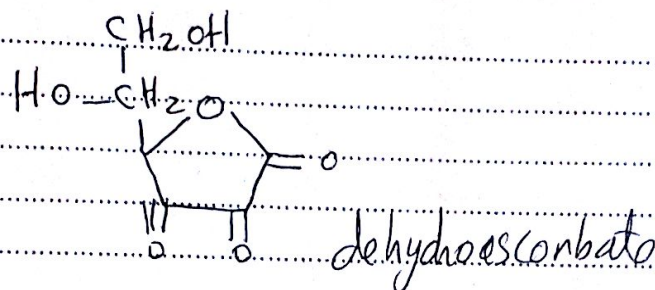 CH₂OH
HO–CH₂ O
=O
O O dehydroesconbato